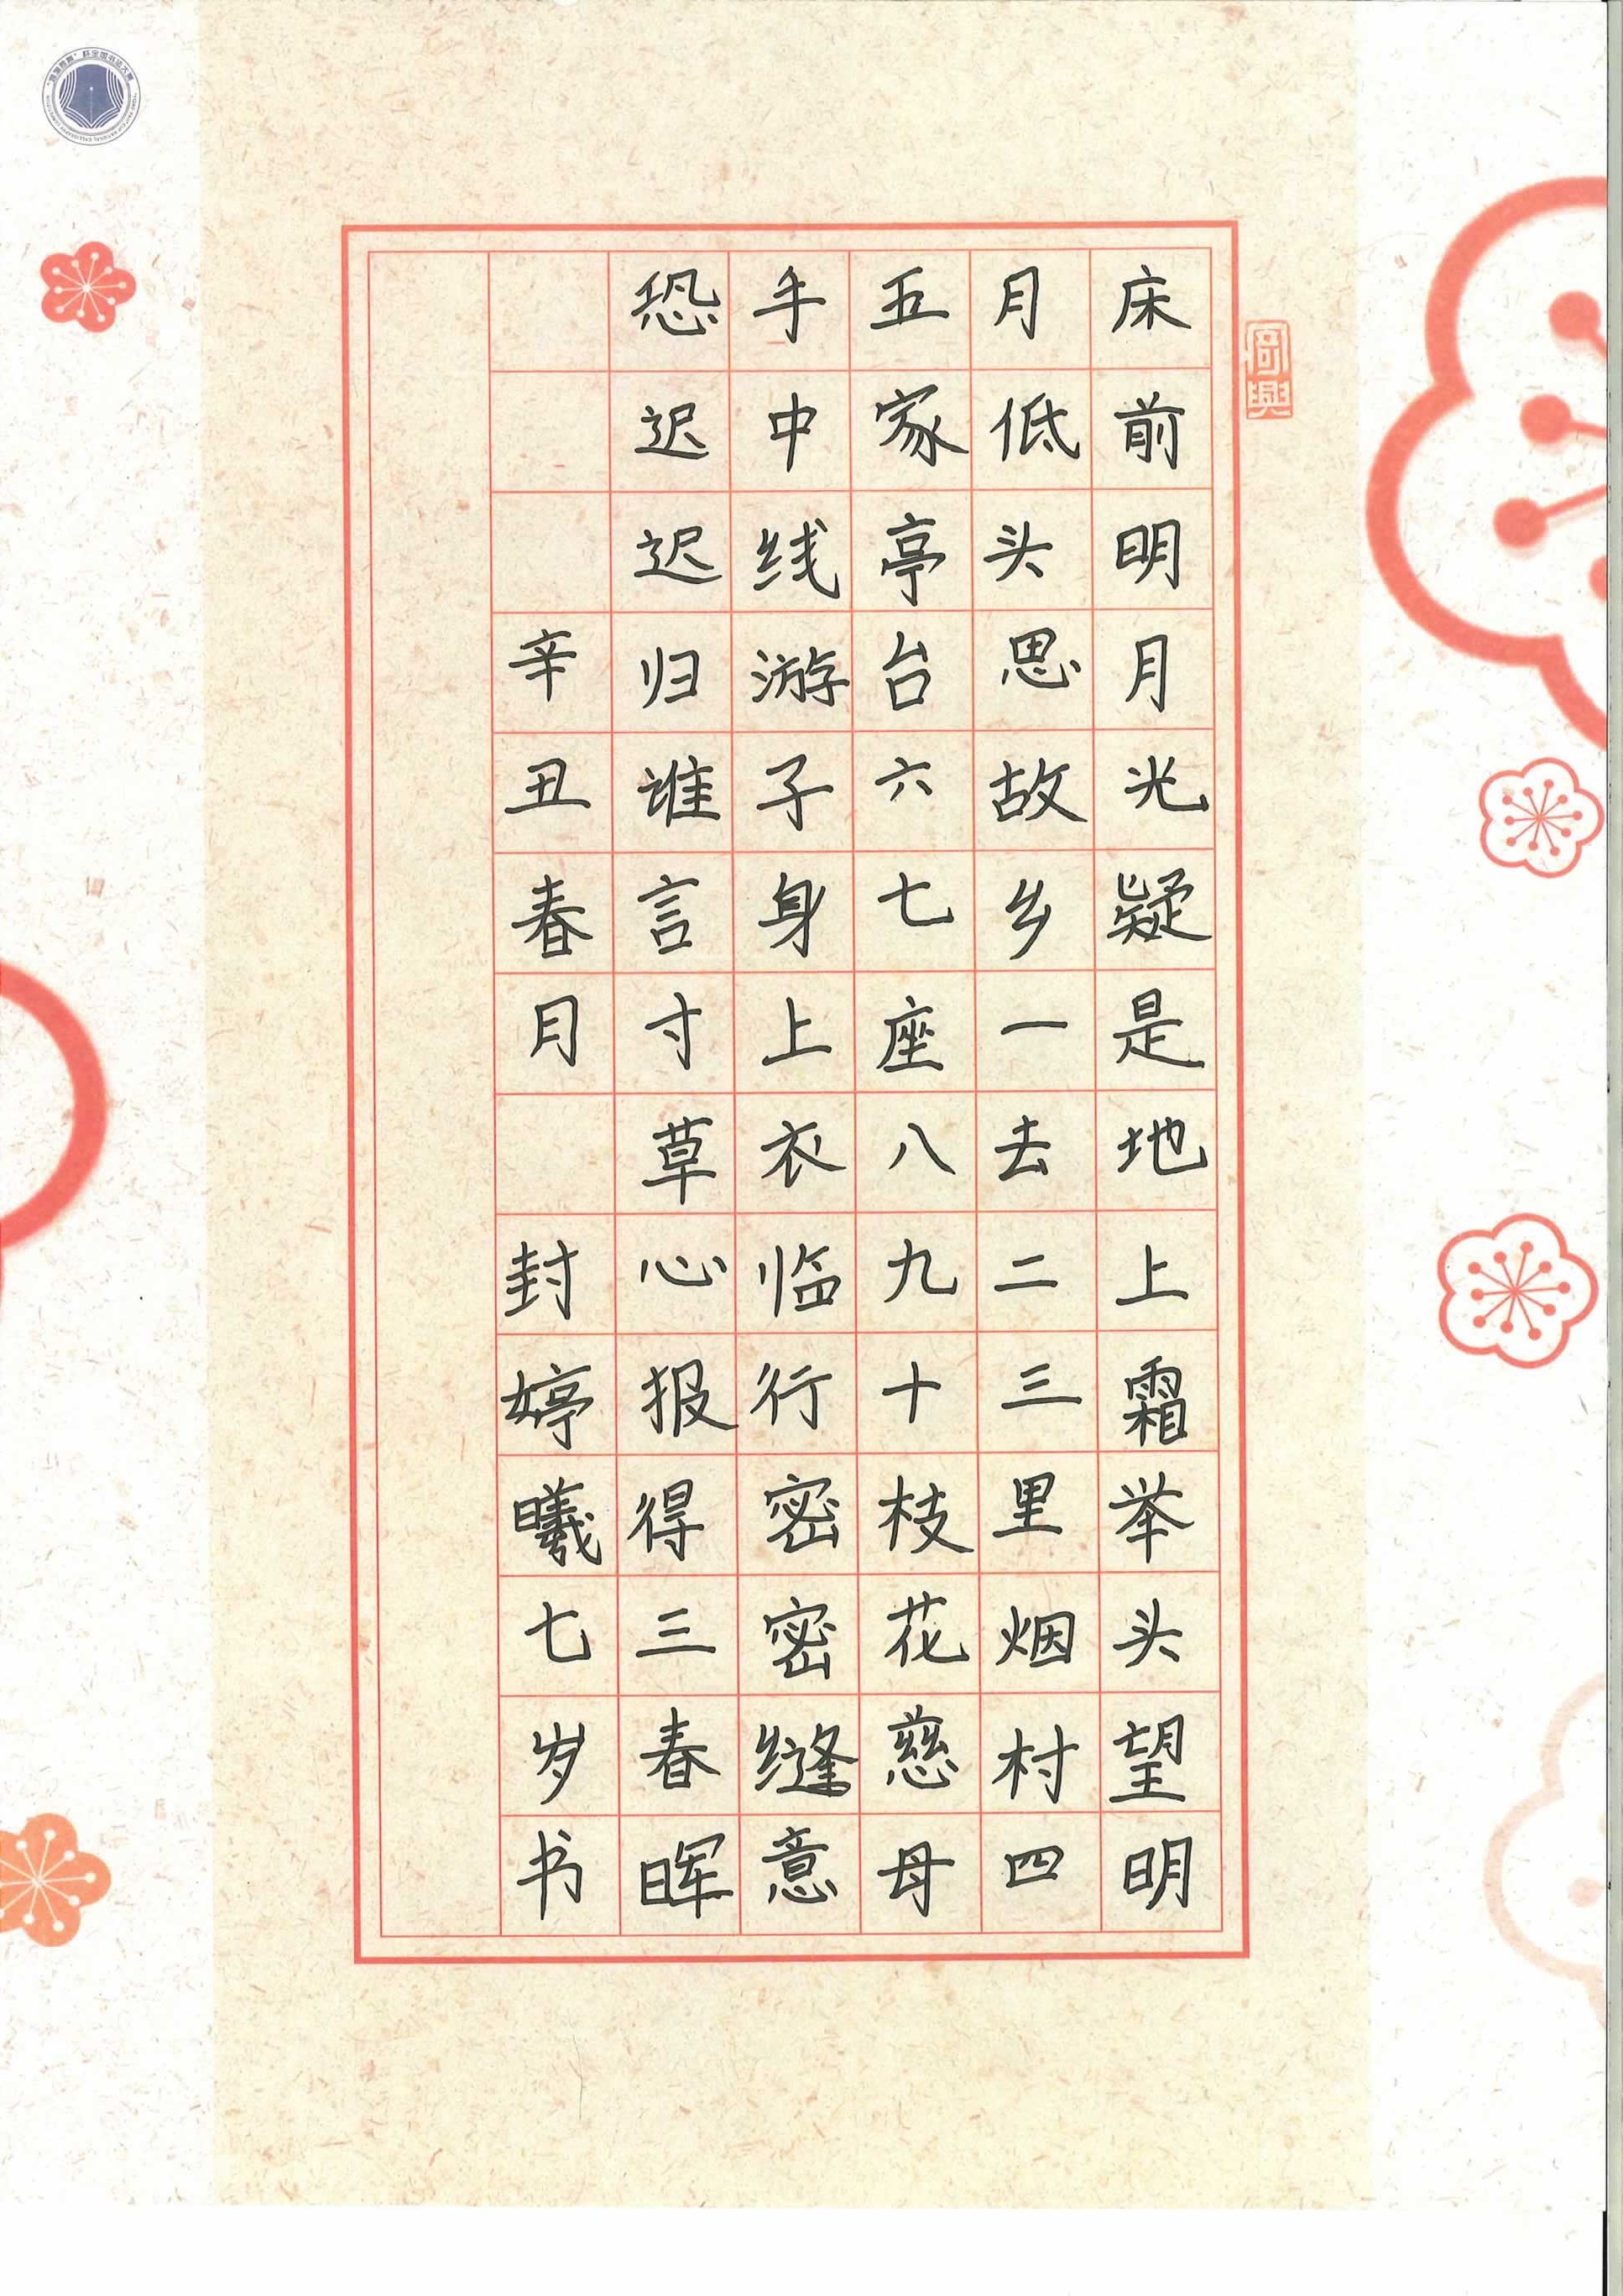 床前明月光疑是地上霜举头望明
月低头思故乡一去二三里烟村四
五家亭台六七座八九十枝花慈母
手中线游子身上衣临行密密缝意
恐迟迟归谁言寸草心报得三春晖
辛丑春月 封婷曦七岁书